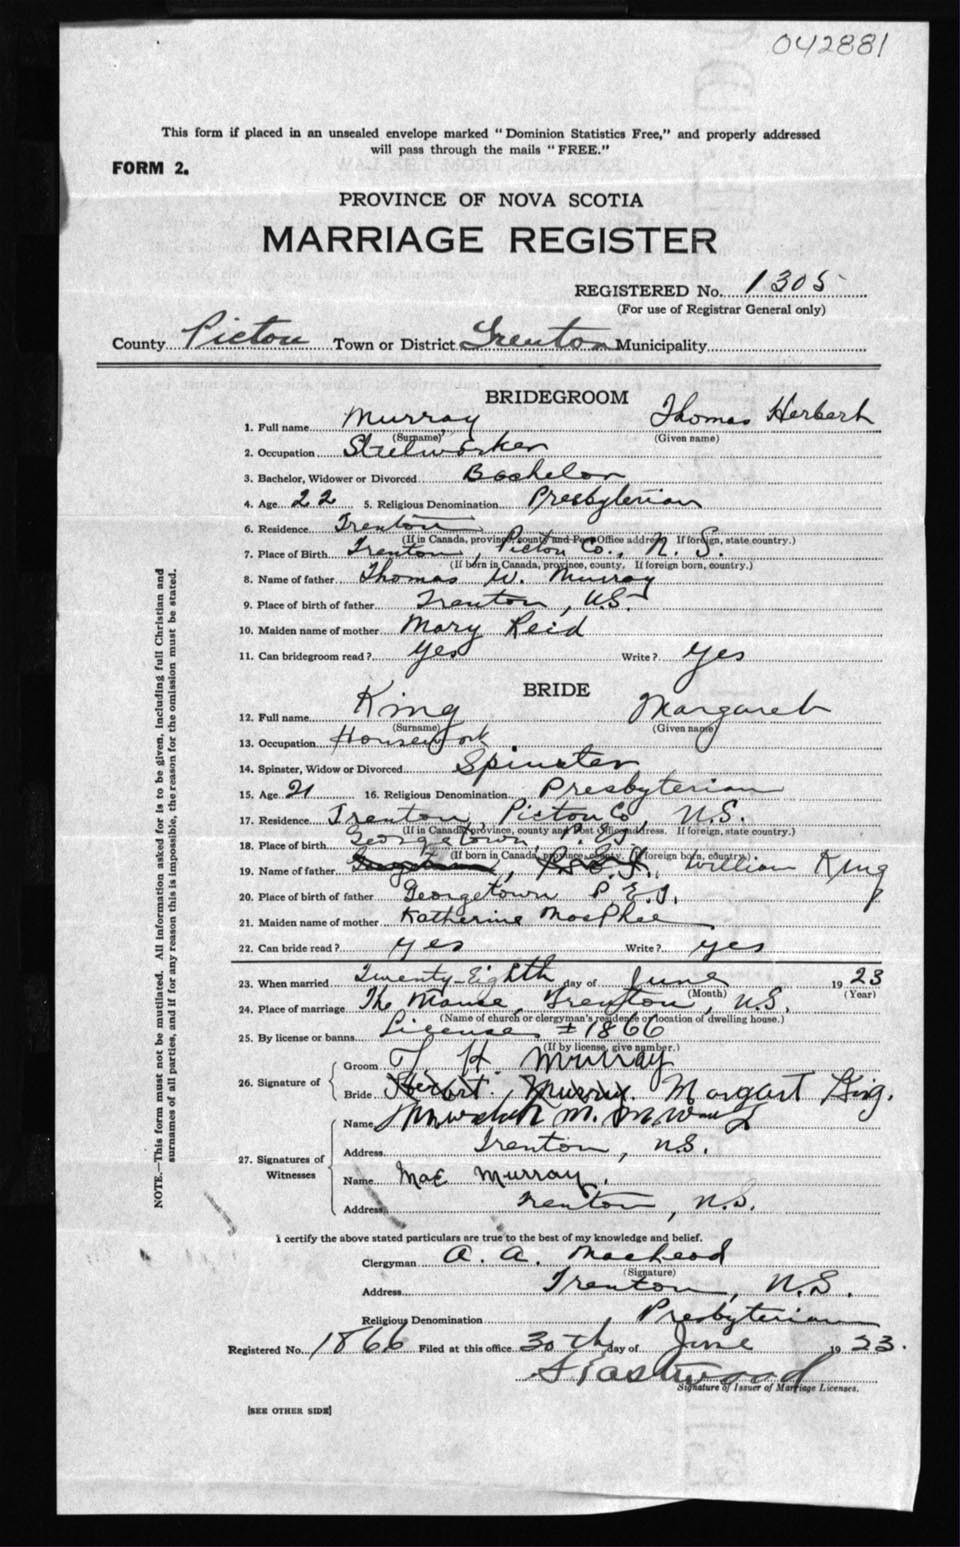 042881
This form if placed in an unsealed envelope marked "Dominion Statistics Free," and properly addressed
will pass through the mails "FREE."
FORM 2.
PROVINCE OF NOVA SCOTIA
MARRIAGE REGISTER
REGISTERED No. 1305
(For use of Registrar General only)
County Pictou Town or District Trenton Municipality
BRIDEGROOM
1. Full name Murray Thomas Herbert
(Surname) (Given name)
2. Occupation Steelworker
3. Bachelor, Widower or Divorced Bachelor
4. Age 22 5. Religious Denomination Presbyterian
6. Residence Trenton
(If in Canada, province, county and Post Office address. If foreign, state country.)
7. Place of Birth Trenton, Pictou Co., N. S.
(If born in Canada, province, county. If foreign born, country.)
8. Name of father Thomas W. Murray
9. Place of birth of father Trenton, N.S.
10. Maiden name of mother Mary Reid
11. Can bridegroom read? Yes Write? Yes
BRIDE
12. Full name King Margaret
(Surname) (Given name)
13. Occupation Housework
14. Spinster, Widow or Divorced Spinster
15. Age 21 16. Religious Denomination Presbyterian
17. Residence Trenton, Pictou Co, N.S.
(If in Canada, province, county and Post Office address. If foreign, state country.)
18. Place of birth Georgetown, P.E.I.
(If born in Canada, province, county. If foreign born, country.)
19. Name of father Georgetown, P.E.I. William King
20. Place of birth of father Georgetown P.E.I.
21. Maiden name of mother Katherine MacPhee
22. Can bride read? Yes Write? Yes
23. When married Twenty-Eighth day of June 1923
(Month) (Year)
24. Place of marriage The Manse, Trenton, N.S.
(Name of church or clergyman's residence or location of dwelling house.)
25. By license or banns License # 1866
(If by license, give number.)
26. Signature of
Groom T. H. Murray
Bride Herbert Murray. Margart King.
27. Signatures of Witnesses
Name
Address Trenton, N.S.
Name Mae Murray.
Address Trenton, N.S.
I certify the above stated particulars are true to the best of my knowledge and belief.
Clergyman A. A. MacLeod
(Signature)
Address Trenton, N.S.
Religious Denomination Presbyterian
Registered No. 1866 Filed at this office 30th day of June 1923.
Eastwood
Signature of Issuer of Marriage Licenses.
[SEE OTHER SIDE]
NOTE.—This form must not be mutilated. All information asked for is to be given, including full Christian and
surnames of all parties, and if for any reason this is impossible, the reason for the omission must be stated.